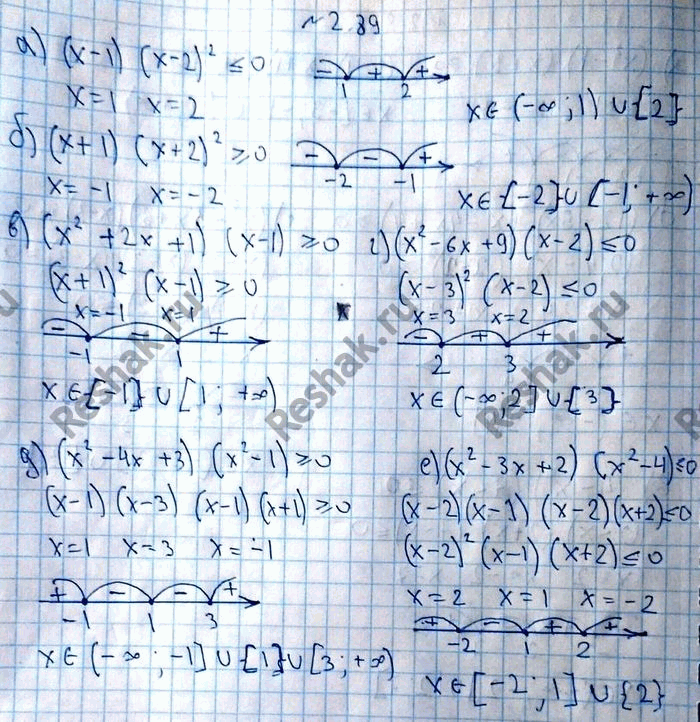 № 2.39
а) (x-1) (x-2)² ≤ 0
x=1 x=2
- + +
1 2
x∈ (-∞; 1) ∪ {2}
б) (x+1) (x+2)² ≥ 0
x= -1 x= -2
- - +
-2 -1
x∈ {-2} ∪ [-1; +∞)
в) (x² + 2x + 1) (x-1) ≥ 0
(x+1)² (x-1) ≥ 0
x=-1 x=1
- - +
-1 1
x∈ {-1} ∪ [1; +∞)
г) (x² - 6x + 9) (x-2) ≤ 0
(x-3)² (x-2) ≤ 0
x=3 x=2
- + +
2 3
x∈ (-∞; 2] ∪ {3}
д) (x² - 4x + 3) (x² - 1) ≥ 0
(x-1) (x-3) (x-1) (x+1) ≥ 0
x=1 x=3 x=-1
+ - - +
-1 1 3
x∈ (-∞; -1] ∪ {1} ∪ [3; +∞)
е) (x² - 3x + 2) (x² - 4) ≤ 0
(x-2) (x-1) (x-2) (x+2) ≤ 0
(x-2)² (x-1) (x+2) ≤ 0
x=2 x=1 x=-2
+ - + +
-2 1 2
x∈ [-2; 1] ∪ {2}
Reshak.ru
Reshak.ru
Reshak.ru